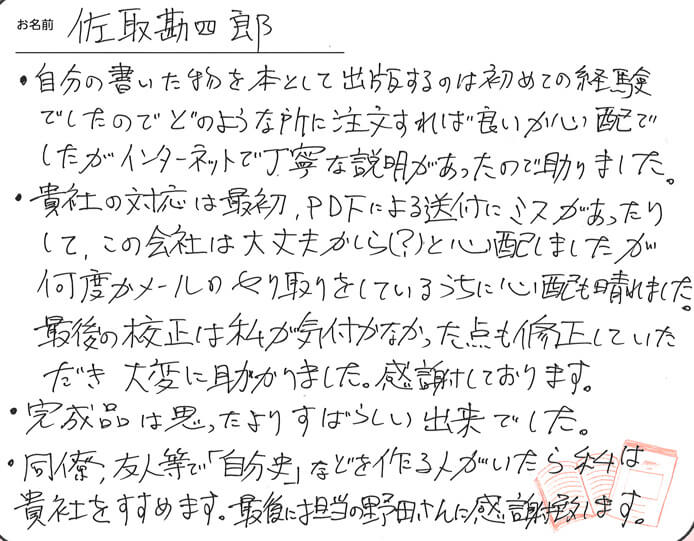 お名前 佐取勘四郎
・自分の書いた物を本として出版するのは初めての経験
でしたのでどのような所に注文すれば良いか心配で
したがインターネットで丁寧な説明があったので助りました。
・貴社の対応は最初、PDFによる送付にミスがあったり
して、この会社は大丈夫かしら(?)と心配しましたが
何度かメールのやり取りをしているうちに心配も晴れました。
最後の校正は私が気付かなかった点も修正していた
だき 大変に助かりました。感謝しております。
・完成品は思ったよりすばらしい出来でした。
・同僚、友人等で「自分史」などを作る人がいたら私は
貴社をすすめます。最後に担当の野田さんに感謝致します。